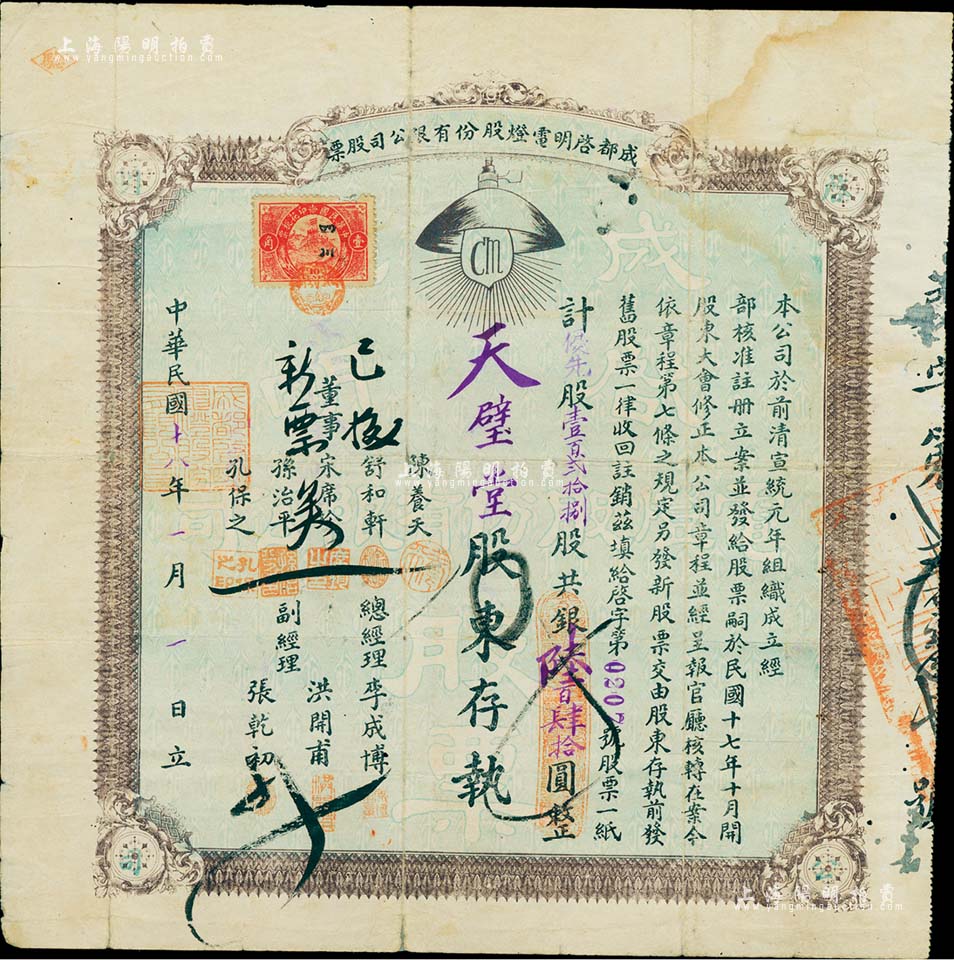 上海陽明拍賣
www.yangmingauction.com
成都啓明電燈股份有限公司股票
CM
本公司於前清宣統元年組織成立經
部核准註册立案並發給股票嗣於民國十七年十月開
股東大會修正本公司章程並經呈報官廳核轉在案今
依章程第七條之規定另發新股票交由股東存執前發
舊股票一律收回註銷茲填給啓字第020號股票一紙
計優先股壹百弍拾捌股共銀陸百肆拾圓整
天璧堂股東存執
陳養天
董事
舒和軒
孫治平
孔保之
總經理 李成博
副經理
洪開甫
張乾初
已換
新票
中華民國十八年一月一日立
壹
角
四川
上海陽明拍賣
www.yangmingauction.com
上海陽明拍賣
www.yangmingauction.com